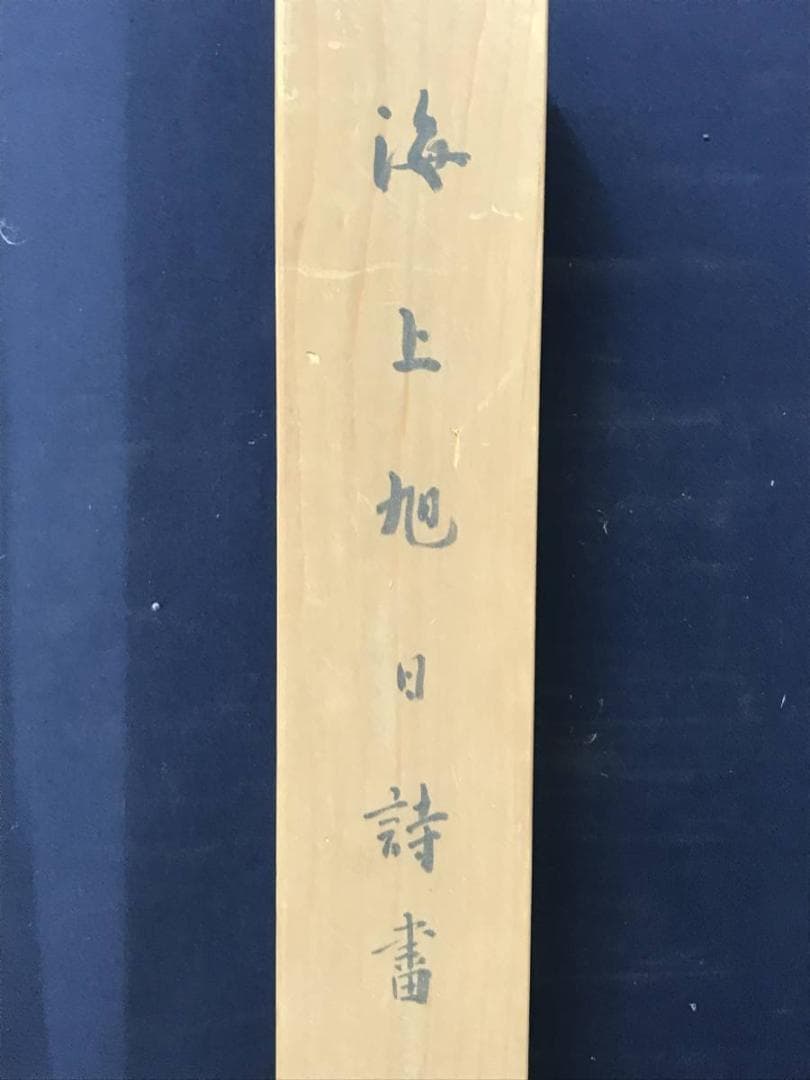 海上旭日詩畵